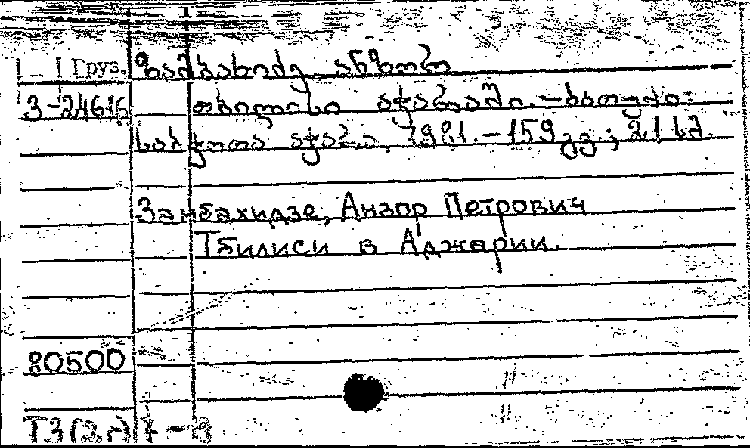 Груз. ზამბახიძე ანზორ
3-24616 თბილისი აჭარაში.-ბათუმი:
საბჭოთა აჭარა, 1981.-159 გვ.; 21 სმ.
Замбахидзе, Анзор Петрович
Тбилиси в Аджарии.
80500